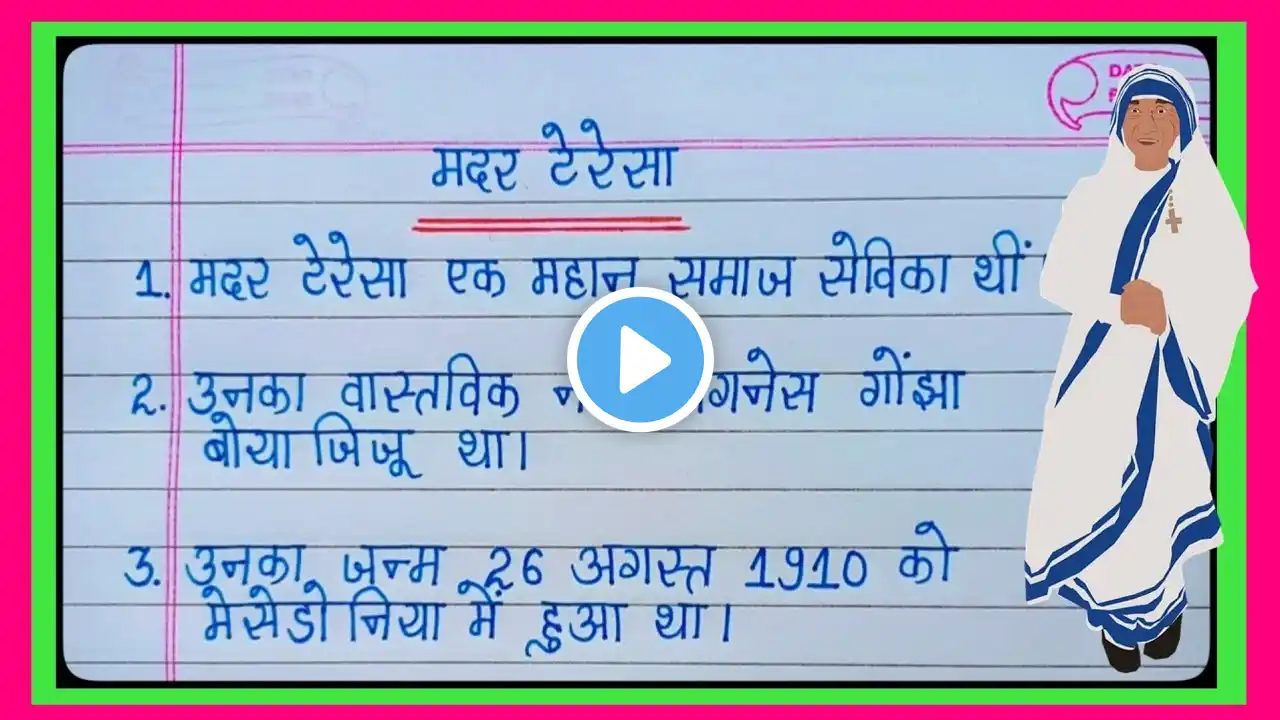 DAT
मदर टेरेसा
1. मदर टेरेसा एक महान समाज सेविका थीं
2. उनका वास्तविक गोंझा
बोयाजिजू था।
3. उनका जन्म 26 अगस्त 1910 को
मेसेडोनिया में हुआ था।